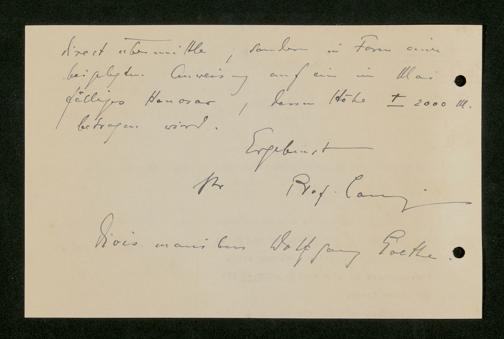 direct übermittle, sondern in Form einer
beigelegten Anweisung auf ein im Mai
fälliges Honorar, dessen Höhe ± 2000 M.
betragen wird.
Ergebenst
Ihr Prof.
manibus Wolfgang Goethe.